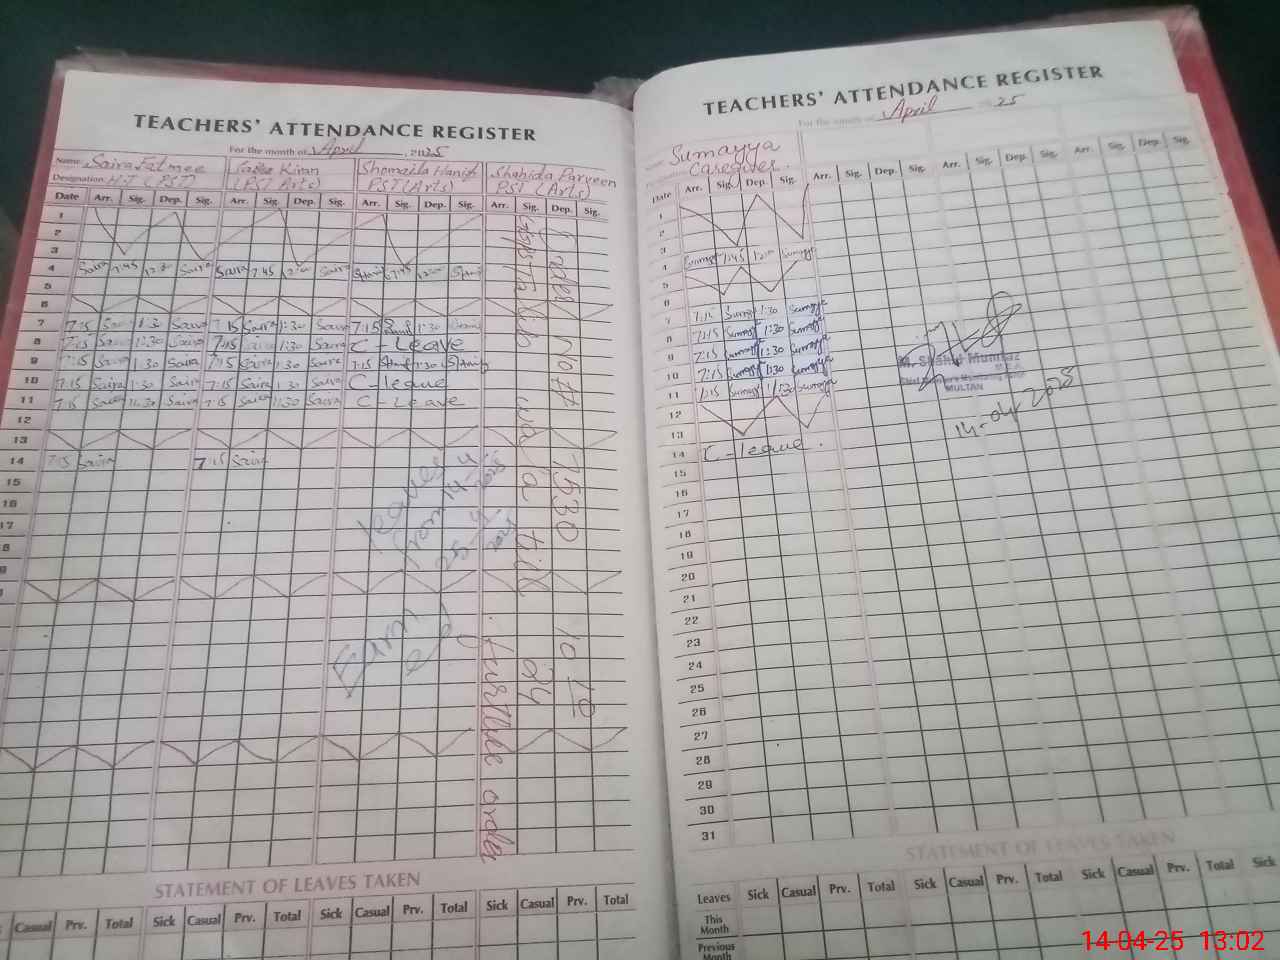 TEACHERS' ATTENDANCE REGISTER
For the month of April, 2025
Name: Saira Fatmee Kiran Shomaila Hanif Shahida Parveen
Designation: H.T (PST) (PST Arts) PST (Arts) PST (Arts)
Date Arr. Sig. Dep. Sig. Arr. Sig. Dep. Sig. Arr. Sig. Dep. Sig. Arr. Sig. Dep. Sig.
1
2
3
4 Saira 7:45 12:30 Saira Saira 7:45 12:00 Saira 7:45 12:00
5
6
7 7:15 Saira 1:30 Saira 7:15 Saira 1:30 Saira 7:15 1:30
8 7:15 Saira 1:30 Saira 7:15 Saira 1:30 Saira C - Leave
9 7:15 Saira 1:30 Saira 7:15 Saira 1:30 Saira 7:15 1:30
10 7:15 Saira 1:30 Saira 7:15 Saira 1:30 Saira C - leave
11 7:15 Saira 11:30 Saira 7:15 Saira 11:30 Saira C - Leave
12
13
14 7:15 Saira 7:15 Saira
15
16
17
8
leaves
from 14-4
2025
25-4
2025
Earn
order No # 7530 10 10
24
till further order
STATEMENT OF LEAVES TAKEN
Casual Prv. Total Sick Casual Prv. Total Sick Casual Prv. Total Sick Casual Prv. Total
TEACHERS' ATTENDANCE REGISTER
For the month of April 25
Sumayya
Caregiver.
Date Arr. Sig. Dep. Sig. Arr. Sig. Dep. Sig. Arr. Sig. Dep. Sig. Arr. Sig. Dep. Sig.
1
2
3
4 Sumayya 7:45 12:00 Sumayya
5
6
7 7:15 Sumayya 1:30 Sumayya
8 7:15 Sumayya 1:30 Sumayya
9 7:15 Sumayya 1:30 Sumayya
10 7:15 Sumayya 1:30 Sumayya
11 7:15 Sumayya 11:30 Sumayya
12
13
14 C - leave.
15
16
17
18
19
20
21
22
23
24
25
26
27
28
29
30
31
M. Shahid Mumtaz
MULTAN
14-04-2025
STATEMENT OF LEAVES TAKEN
Leaves Sick Casual Prv. Total Sick Casual Prv. Total Sick Casual Prv. Total Sick
This Month
Previous Month
14-04-25 13:02